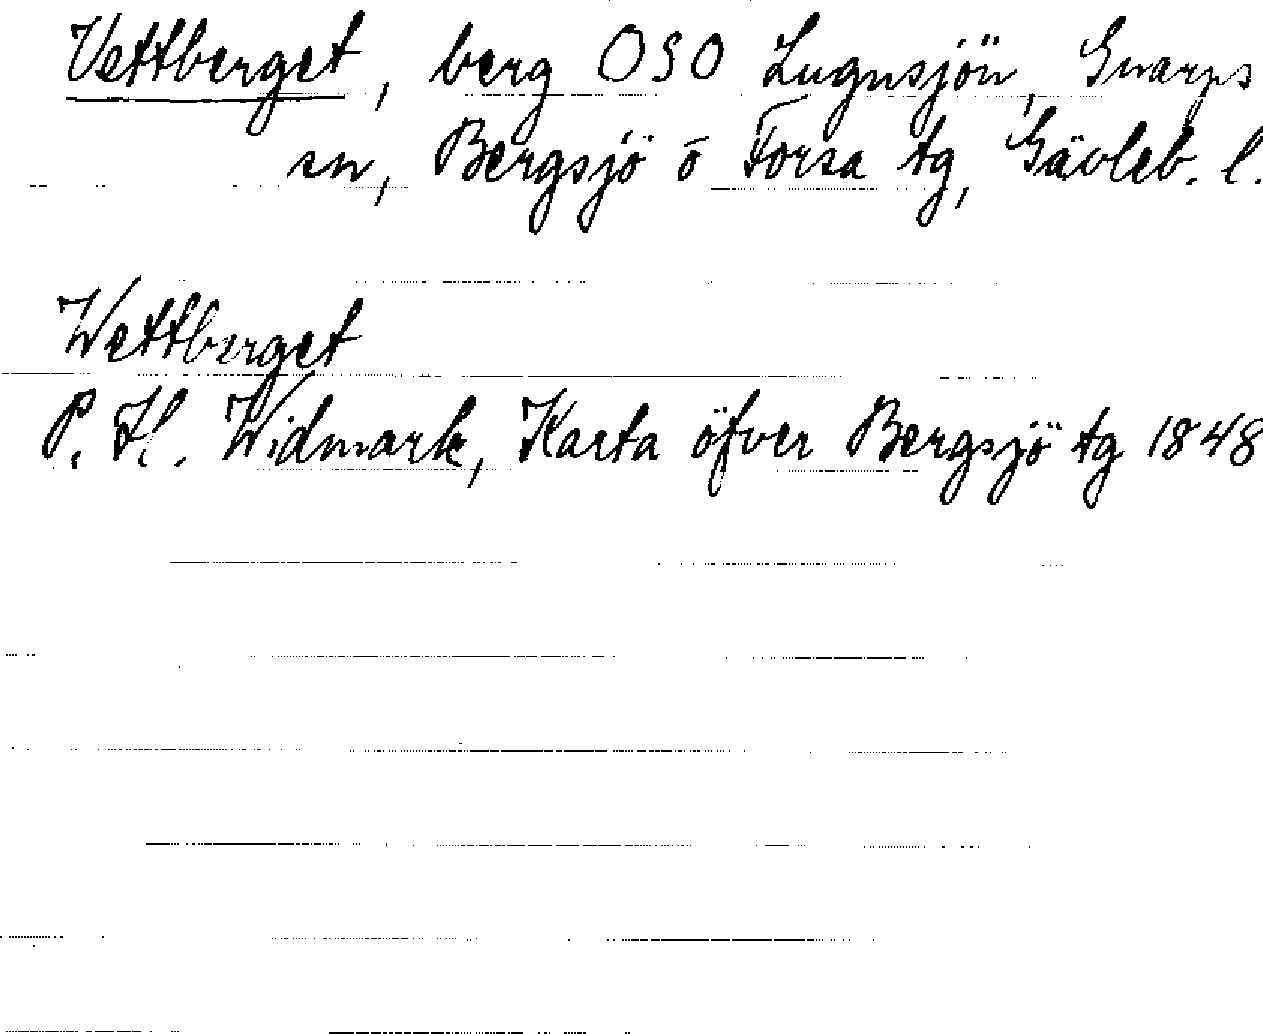 Vettberget, berg OSO Lugnsjön, Gnarps
sn, Bergsjö o Forsa tg, Gävleb. l.
Wettberget
P. H. Widmark, Karta öfver Bergsjö tg 1848